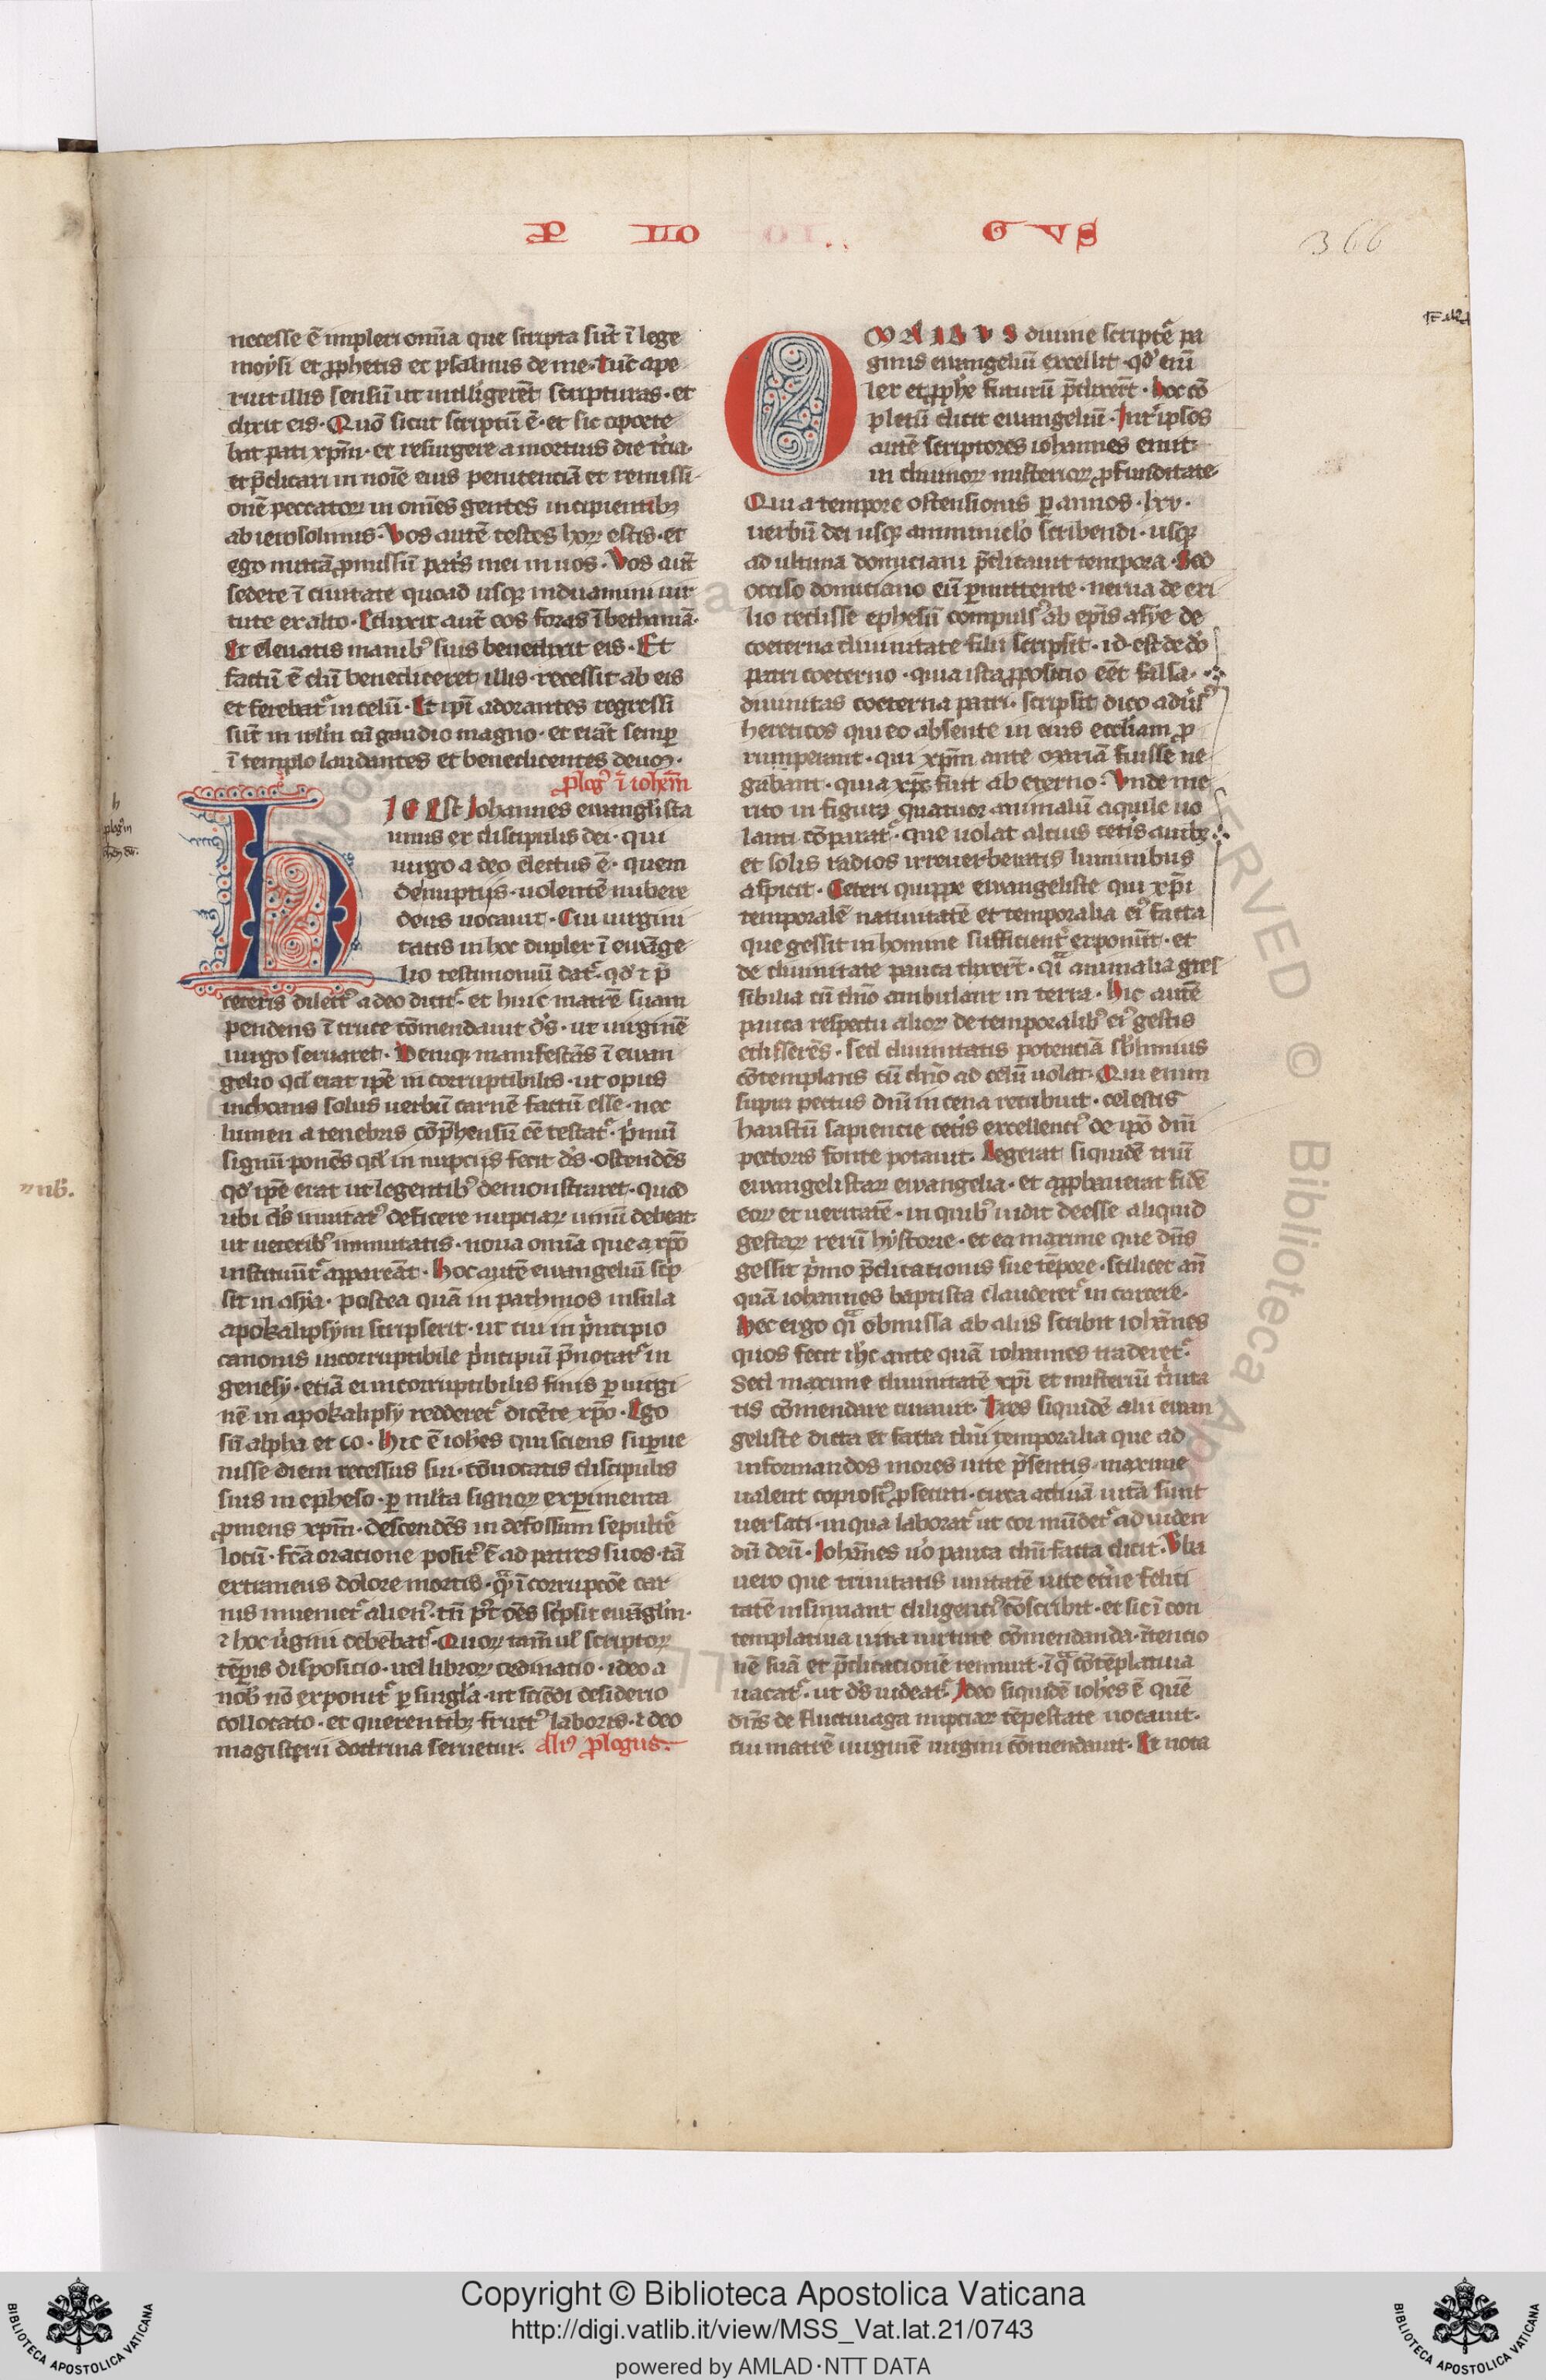 P RO LO GVS
366
necesse ē impleri om̄ia que scripta sūt ī lege
moysi et ꝓphetis et psalmis de me. Tūc ape
ruit illis sensū ut intelligerēt scripturas. et
dixit eis. Qm̄ sicut scriptū ē. et sic oporte
bat pati xp̄m. et resurgere a mortuis die t̄cia.
et p̄dicari in noīe eius penitenciā et remissi
onē peccatoꝝ in omēs gentes incipientibꝫ
ab ierosolimis. Vos autē testes hoꝝ estis. et
ego mittā ꝓmissū pat̄s mei in uos. Vos aut̄
sedete ī ciuitate quoad usqꝫ induamini uir
tute ex alto. Eduxit aut̄ eos foras ī bethaniā.
Et eleuatis manibꝰ suis benedixit eis. Et
factū ē dū benediceret illis. recessit ab eis
et ferebat᷑ in celū. Et ipī adorantes regressi
sūt in irl̄m cū gaudio magno. et erāt semꝑ
ī templo laudantes et benedicentes deum.
ꝓlogꝰ ī ioh̄em
hIC Est Johannes ewanglista
unus ex discipulis dei. qui
uirgo a deo electus ē. quem
de nuptijs. uolentē nubere
deus uocauit. Cui uirgini
tatis in hoc duplex ī ewāge
lio testimoniū dat᷑. qd̓ ⁊ p̄
ceteris dilectꝰ a deo dicit᷑. et huic matrē suam
pendens ī cruce cōmendauit dn̄s. ut uirginē
uirgo seruaret. Deniqꝫ manifestās ī ewan
gelio qd̓ erat ipē in corruptibilis. ut opus
inchoans solus uerbū carnē factū esse. nec
lumen a tenebris cōp̄hensū eē testat᷑. p̓mū
signū ponēs qd̓ in nupcijs fecit dn̄s. ostendēs
qd̓ ipē erat ut legentibꝰ demonstraret. quod
ubi dn̄s inuitatꝰ deficere nupciaꝝ uinū debeat.
ut ueteribꝰ inmutatis. noua omīa que a xp̄o
instituūt᷑ appareāt. Hoc autē ewangeliū sc̓p
sit in asya. postea quā in pathmos insula
apokalipsym scripserit. ut cui in p̓ncipio
canonis incorruptibile p̓ncipiū p̄notat᷑ in
genesy. etiā ei incorruptibilis finis ꝑ uirgi
nē in apokalipsy redderet᷑ dicēte xp̄o. Ego
sū alpha et ω. Hic ē ioh̄es qui sciens suꝑue
nisse diem recessus sui. cōuocatis discipulis
suis in epheso. ꝑ ml̓ta signoꝝ expimenta
ꝓmens xp̄m. descendēs in defossum sepultē
locū. fc̄a oracione positꝰ ē ad patres suos. tā
extraneus dolore mortis. q̄ ī corrupcōe car
nis inuenit᷑ alienꝰ. tn̄ pꝰt oēs sc̓psit euāgl̄m.
⁊ hoc ūgini debebat᷑. Quoꝝ tam̄ ul̓ scriptoꝝ
tēpis disposicio. uel libroꝝ ordinacio. ideo a
nob̓ nō exponit᷑ ꝑ singl̓a. ut sciēdi desiderio
collocato. et querentibꝫ fructꝰ laboris. ⁊ deo
magisterii doctrina seruetur. Aliꝰ ꝓlogus.
OMNIBVS diuine scriptē pa
ginis ewangeliū excellit. qd̓ enī
lex et ꝓph̄e futurū p̄dixerūt. hoc cō
pletū dicit ewangeliū. Int̓ ipsos
autē scriptores iohannes emīt
in diuinoꝝ misterioꝝ ꝓfunditate.
Qui a tempore ostensionis ꝑ annos. lxv.
uerbū dei usqꝫ amminiclo scribendi. usqꝫ
ad ultima domiciani p̄dicauit tempora. Sed
occiso domiciano eū ꝑmittente. nerua de exi
lio redisse ephesū compulsꝰ ab ep̄is asye de
coeterna diuinitate filii scripsit. id. est de dō
patri coeterno. quia ista ꝓposicio eēt falsa.
diuinitas coeterna patri. scripsit dico adūsꝰ
hereticos qui eo absente in eius eccliam ꝓ
rumperant. qui xp̄m ante mariā fuisse ne
gabant. quia xp̄c fuit ab eterno. Vnde me
rito in figura quatuor animaliū aquile uo
lanti cōparat᷑. que uolat alcius cetis auibꝫ
et solis radios irreuerberatis luminibus
aspicit. Ceteri quippe ewangeliste qui xp̄i
temporalē natiuitatē et temporalia eiꝰ facta
que gessit in homine sufficient̓ exponūt. et
de diuinitate pauca dixer̄t. qͣi animalia gres
sibilia cū dn̄o ambulant in terra. hic autē
pauca respectu alioꝝ de temporalibꝰ eiꝰ gestis
edisserēs. sed diuinitatis potenciā sb̓limius
cōtemplans cū dn̄o ad celū uolat. Qui enim
supra pectus dn̄i in cena recubuit. celestis
haustū sapiencie cetis excellenciꝰ de ipō dn̄i
pectoris fonte potauit. Legerat siquidē triū
ewangelistaꝝ ewangelia. et approbauerat fidē
eoꝝ et ueritatē. in quibꝰ uidit deesse aliquid
gestaꝝ rerū hystorie. et ea maxime que dn̄s
gessit p̓mo p̄dicationis sue tēpore. scilicet an̄
quā iohannes baptista clauderet᷑ in carcere.
Hec ergo qͣi obmissa ab aliis scribit iohānes
quos fecit ih̄c ante quā iohannes traderet᷑.
Sed maxime diuinitatē xp̄i et misteriū t̓nita
tis cōmendare curauit. Tres siquidē alii ewan
geliste dicta et facta dn̄i temporalia que ad
informandos mores uite p̄sentis. maxime
ualent copiosꝰ ꝓsecuti. circa actiuā uitā sunt
uersati. in qua laborat᷑ ut cor mūdet᷑ ad uiden
dū deū. Johānes uo̓ pauca dn̄i facta dicit. Vba
uero que trinitatis unitatē uite et̓ne felici
tatē insinuant diligenciꝰ cōscribit. et sic ī con
templatiua uita uirtute cōmendanda. ītencio
nē suā et p̄dicacionē tenuit. ī qͣ cōtēplatiua
uacat᷑. ut ds̄ uideat᷑. Ideo siquidē ioh̄es ē quē
dn̄s de fluctiuaga nupciaꝝ tēpestate uocauit.
cui matrē uirginē uirgini cōmendauit. Et nota
Copyright © Biblioteca Apostolica Vaticana
http://digi.vatlib.it/view/MSS_Vat.lat.21/0743
powered by AMLAD·NTT DATA
BIBLIOTECA APOSTOLICA VATICANA
BIBLIOTECA APOSTOLICA VATICANA